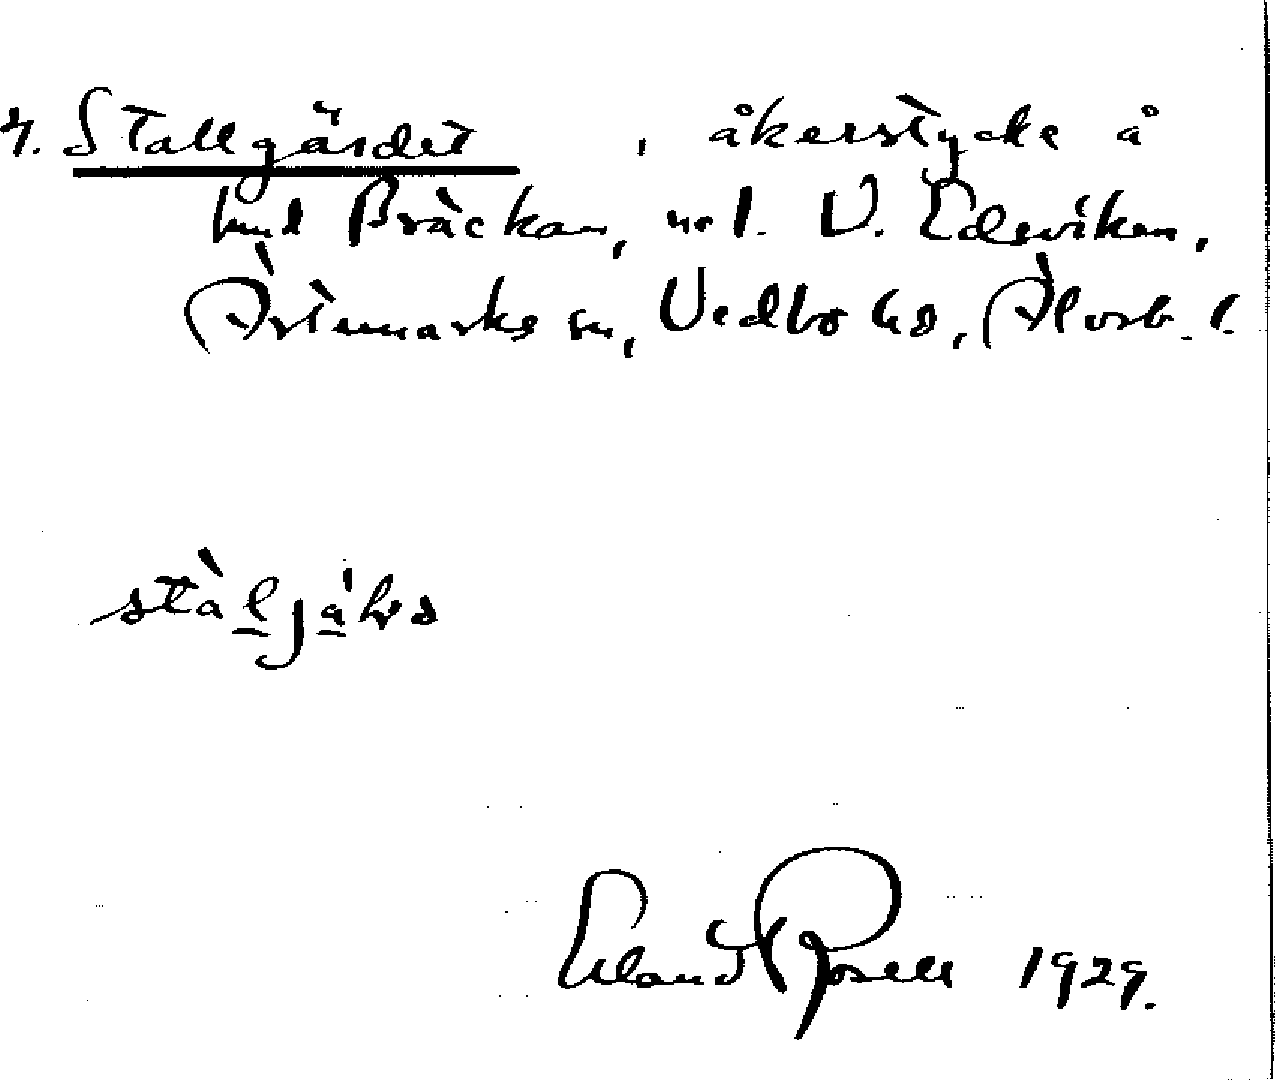 4. Stallgärdet, åkerstycke å
hmd Bräckan, nr 1. V. Edsviken,
Årtemarks sn, Vedbo hd, Älvsb. l.
stàljá
Erland Rosell 1929.